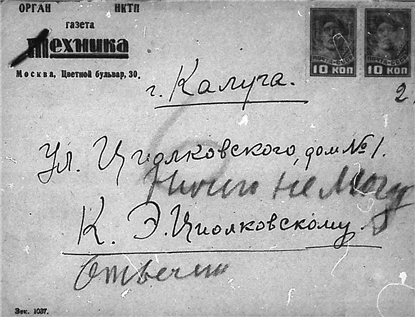 ОРГАН НКТП
газета
Техника
Москва, Цветной бульвар, 30.
10 КОП 10 КОП
2.
г. Калуга.
Ул. Циолковского, дом №1.
Ничего не могу
К. Э. Циолковскому.
Отвечено
Зак. 1037.